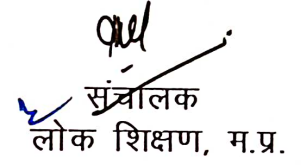 संचालक
लोक शिक्षण, म.प्र.